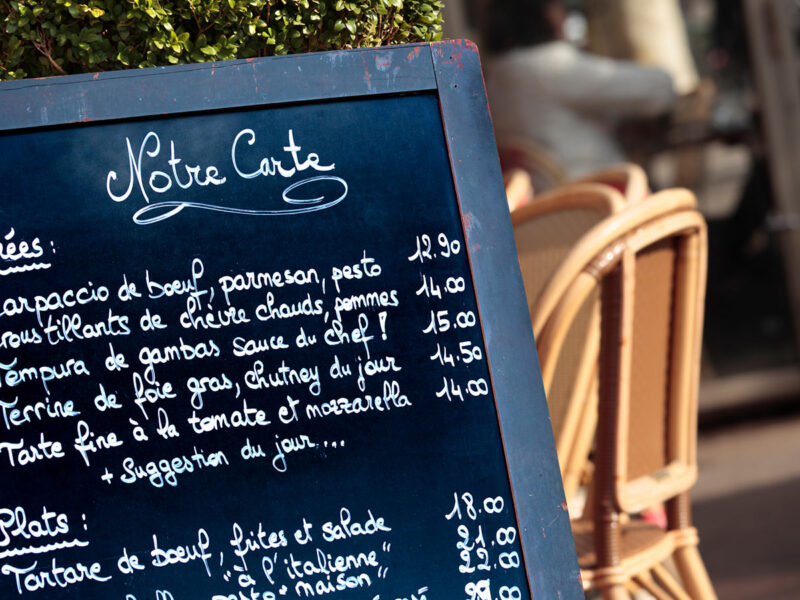 Notre Carte
ées :
arpaccio de bœuf, parmesan, pesto 12.90
roustillants de chèvre chauds, pommes 14.00
Tempura de gambas sauce du chef ! 15.00
Terrine de foie gras, chutney du jour 14.50
Tarte fine à la tomate et mozzarella 14.00
+ Suggestion du jour ...
Plats :
Tartare de bœuf, frites et salade 18.00
"à l'italienne" 21.00
"maison" 22.00